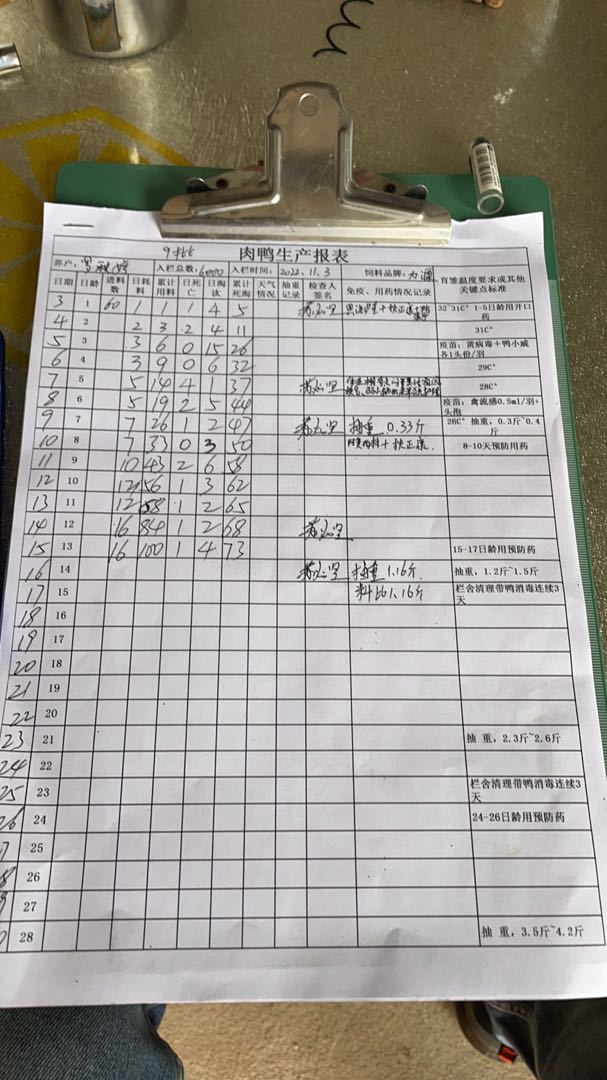 9批 肉鸭生产报表
养户: 入栏总数:6000 入栏时间: 2022.11.3 饲料品牌:
日期 日龄 进料数 日耗料 累计用料 日死亡 日淘汰 累计死淘 天气情况 抽重记录 检查人签名 免疫、用药情况记录 育雏温度要求或其他关键点标准
3 1 60 1 1 1 4 5 32~31C° 1-5日龄用开口药
4 2 2 3 2 4 11 31C°
5 3 3 6 0 15 26 疫苗:黄病毒+鸭小威各1头份/羽
6 4 3 9 0 6 32 29C°
7 5 5 14 4 1 37 28C°
8 6 5 19 2 5 44 疫苗:禽流感0.5ml/羽+头孢
9 7 7 26 1 2 47 抽重 0.33斤 26C° 抽重,0.3斤~0.4斤
10 8 7 33 0 3 50 8-10天预防用药
11 9 10 43 2 6 58
12 10 12 56 1 3 62
13 11 12 68 1 2 65
14 12 16 84 1 2 68
15 13 16 100 1 4 73 15-17日龄用预防药
16 14 抽重 1.16斤. 抽重,1.2斤~1.5斤
17 15 料比1.16斤 栏舍清理带鸭消毒连续3天
18 16
19 17
20 18
21 19
22 20
23 21 抽 重,2.3斤~2.6斤
24 22
25 23 栏舍清理带鸭消毒连续3天
26 24 24-26日龄用预防药
7 25
8 26
27
28 抽 重,3.5斤~4.2斤